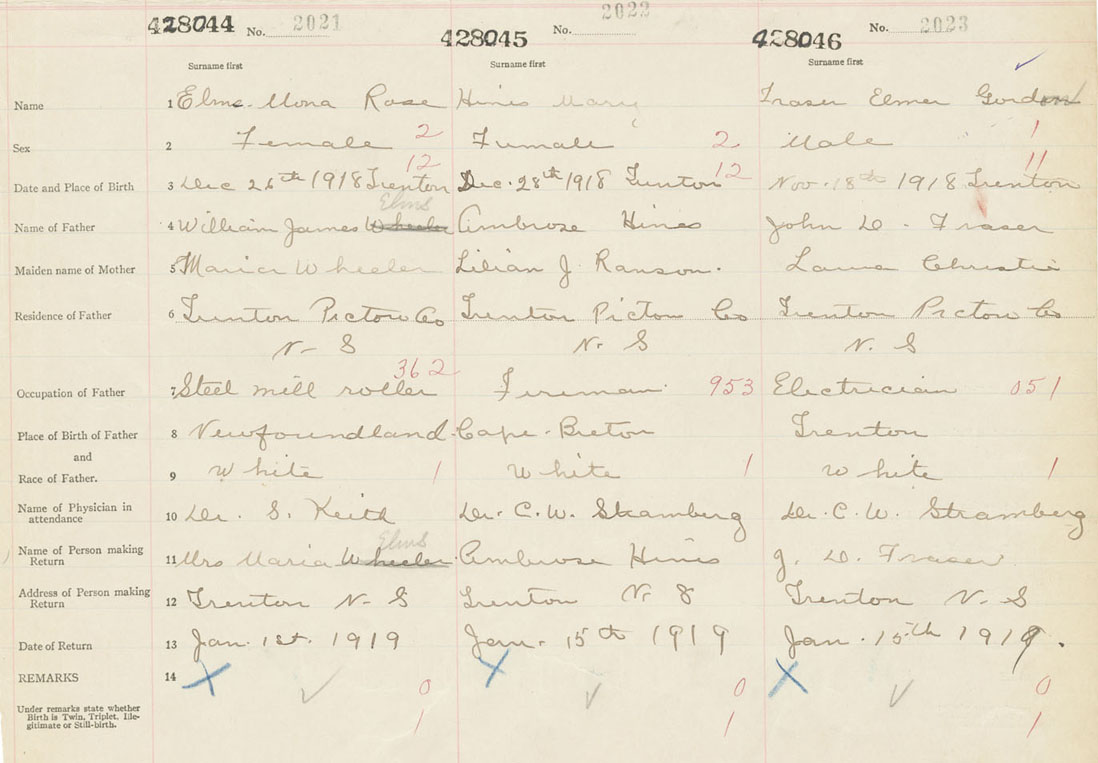 428044 No. 2021 428045 No. 2022 428046 No. 2023
Surname first Surname first Surname first
Name 1 Elms Mona Rose Hines Mary Fraser Elmer Gordon
Sex 2 Female 2 Female 2 Male 1
12 12 11
Date and Place of Birth 3 Dec 26th 1918 Trenton Dec. 28th 1918 Trenton Nov. 18th 1918 Trenton
Elms
Name of Father 4 William James Wheeler Ambrose Hines John D. Fraser
Maiden name of Mother 5 Maria Wheeler Lilian J. Ranson. Laura Christie
Residence of Father 6 Trenton Pictou Co Trenton Pictou Co Trenton Pictou Co
N- S N. S N. S
362
Occupation of Father 7 Steel mill roller Fireman 953 Electrician 051
Place of Birth of Father 8 Newfoundland Cape-Breton Trenton
and
Race of Father. 9 White 1 White 1 White 1
Name of Physician in
attendance 10 Dr. S. Keith Dr. C.W. Stramberg Dr. C. W. Stramberg
Elms
Name of Person making
Return 11 Mrs Maria Wheeler Ambrose Hines J. D. Fraser
Address of Person making
Return 12 Trenton N-S Trenton N-S Trenton N-S
Date of Return 13 Jan. 1st. 1919 Jan. 15th 1919 Jan. 15th 1919.
REMARKS 14
0 0 0
Under remarks state whether
Birth is Twin, Triplet, Ille-
gitimate or Still-birth. 1 1 1